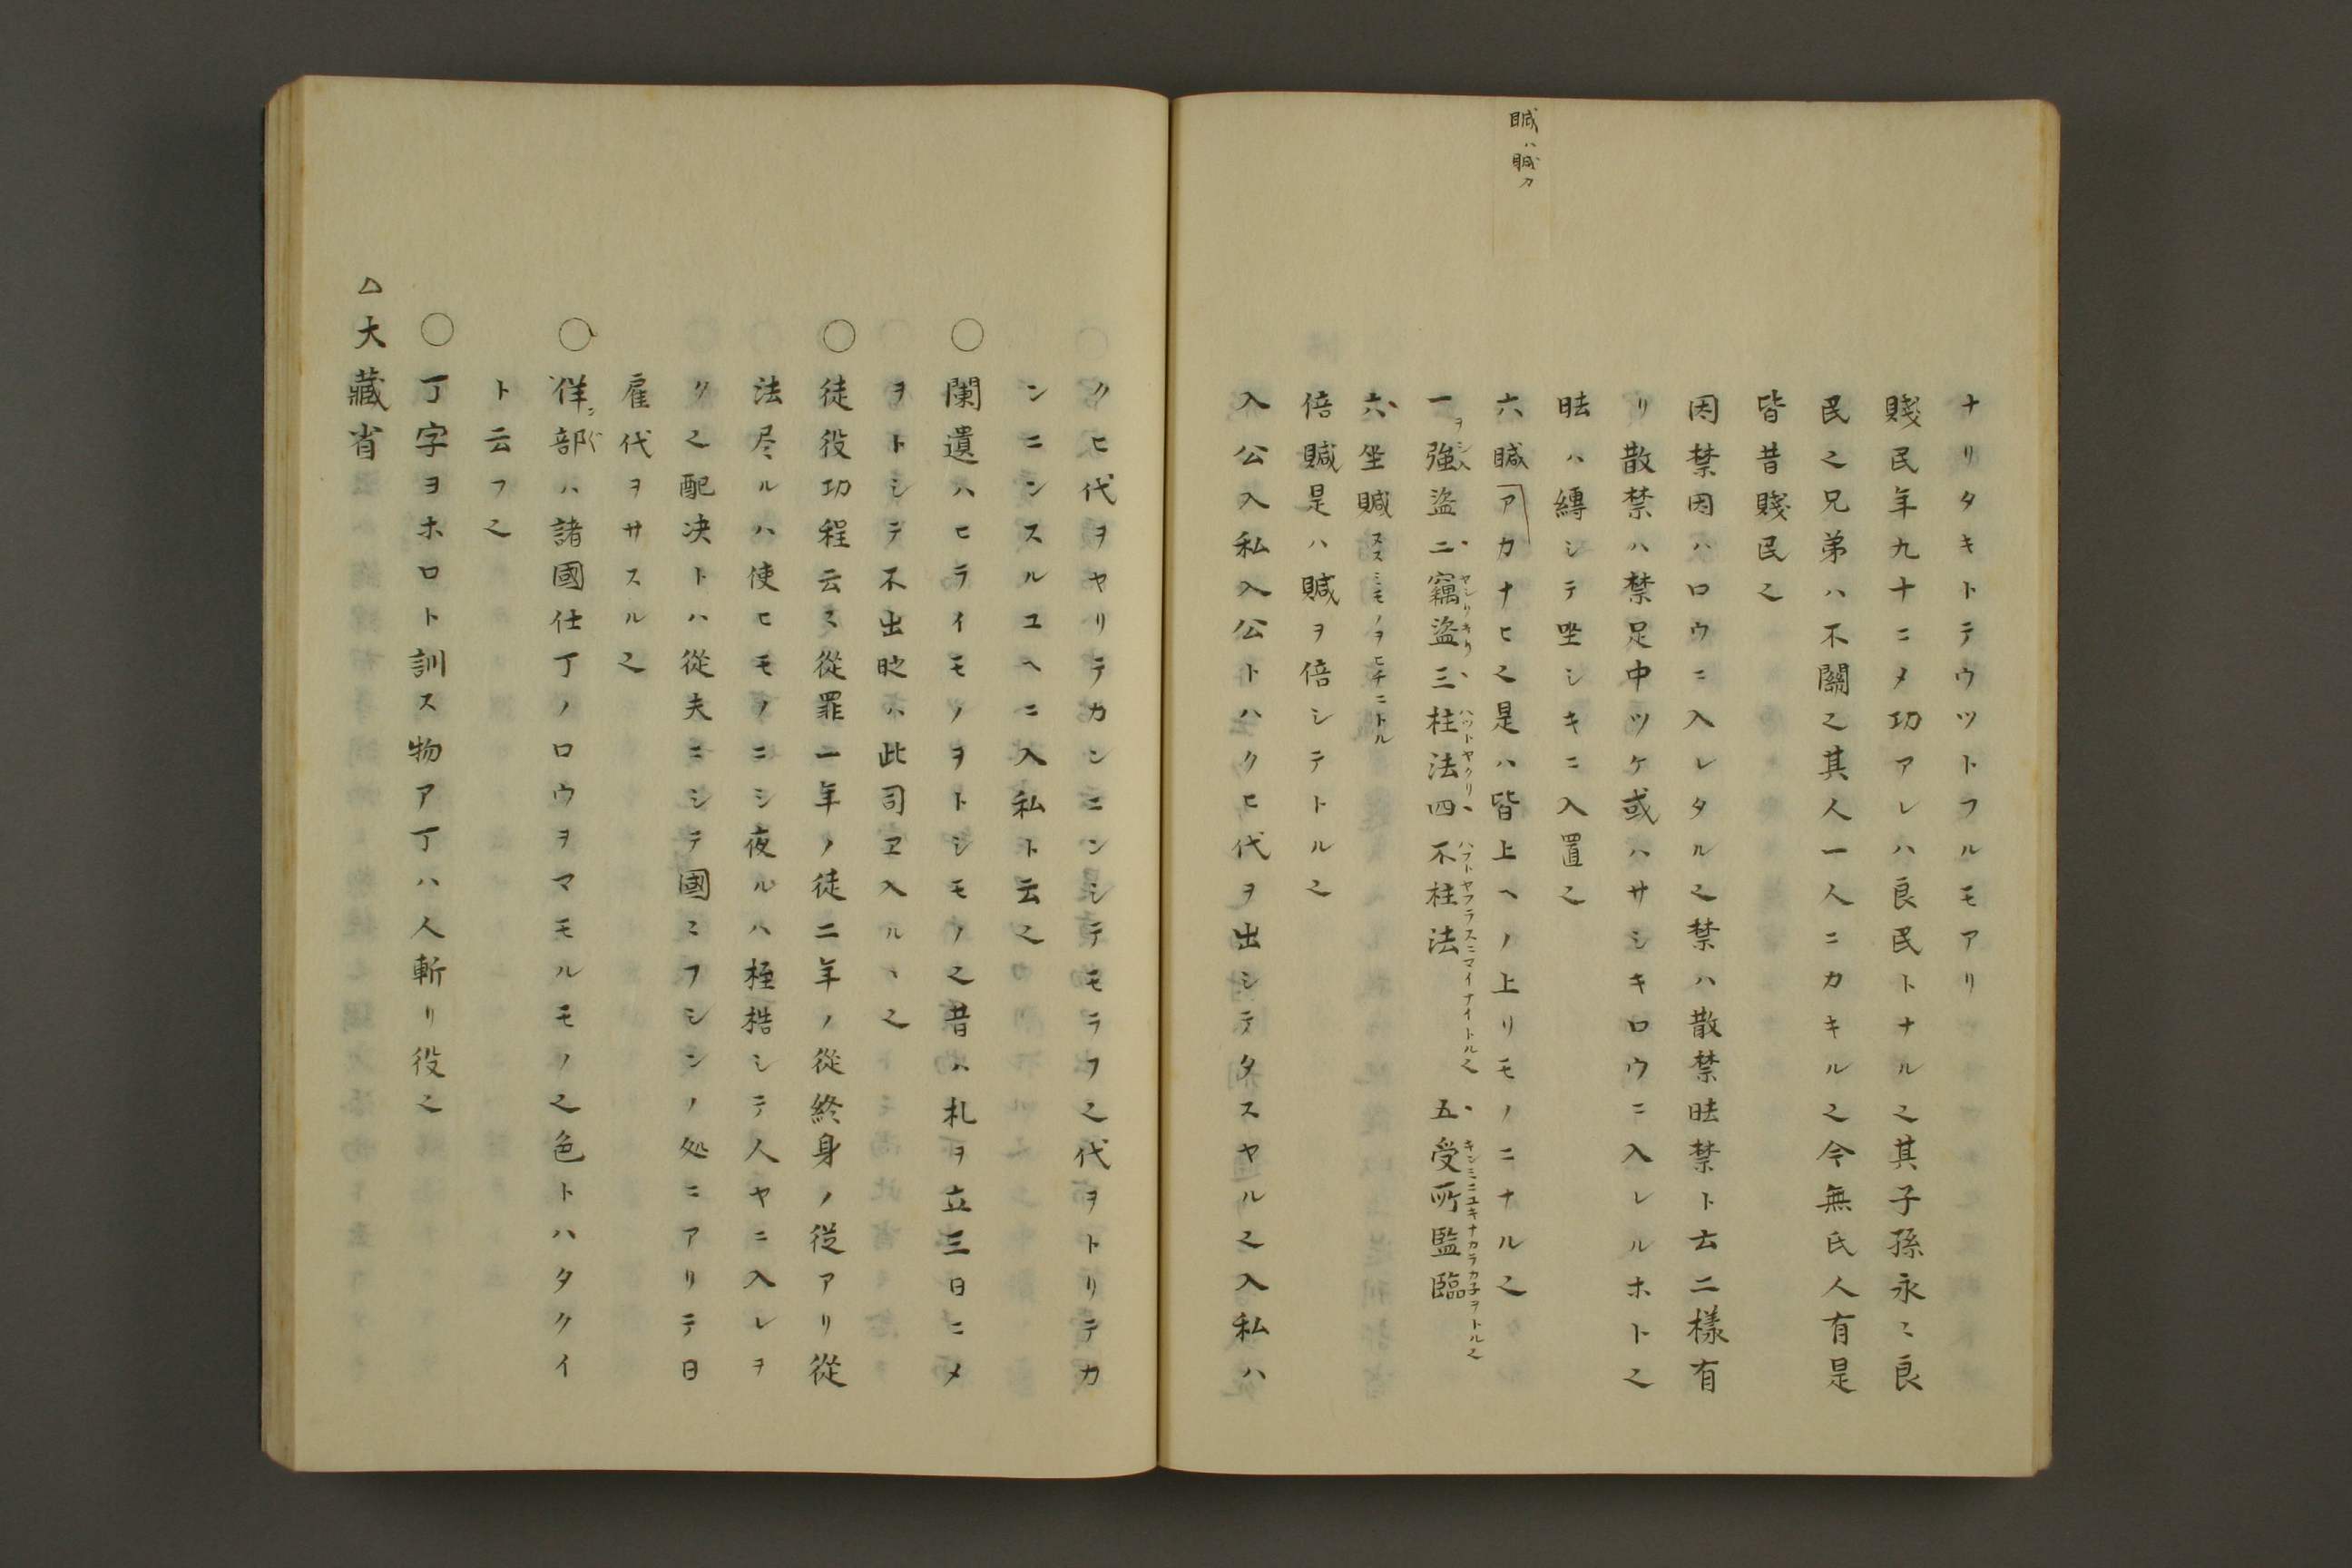 賊ハ贓カ
ナリタキトテウツトフルモアリ
賤民年九十ニメ功アレハ良民トナル之其子孫永ニ良
民之兄弟ハ不關之其人一人ニカキル之今無氏人有是
皆昔賤民之
因禁因ハロウニ入レタル之禁ハ散禁㫢禁ト云二樣有
リ散禁ハ禁足中ツケ或ハサシキロウニ入レルホト之
㫢ハ縛シテ坐シキニ入置之
六贓アカナヒ之是ハ皆上ヘノ上リモノニナル之
一強盗二竊盗三枉法四不枉法 五受所監臨
六坐贓ススミモノヲヒキニトル
倍贓是ハ贓ヲ倍シテトル之
入公入私入公トハクヒ代ヲ出シテタスヤル之入私ハ
クヒ代ヲヤリテカンニンシテモラフ之代ヲトリテカ
ンニンスルユヘニ入私ト云之
○闌遺ハヒライモノヲトシモノ之昔ハ札ヲ立三日ニメ
ヲトシテ不出時ハ此司ヱ入ルヽ之
○徒役功程云云從罪一年ノ徒二年ノ從終身ノ從アリ從
法尽ルハ使ヒモノニシ夜ルハ桎梏シテ人ヤニ入レヲ
ク之配决トハ從夫ニシテ國ニフシンノ処ニアリテ日
雇代ヲサスル之
○佯部ハ諸國仕丁ノロウヲマモルモノ之色トハタクイ
ト云フ之
○丁字ヨホロト訓ス物ア丁ハ人斬リ役之
△大藏省